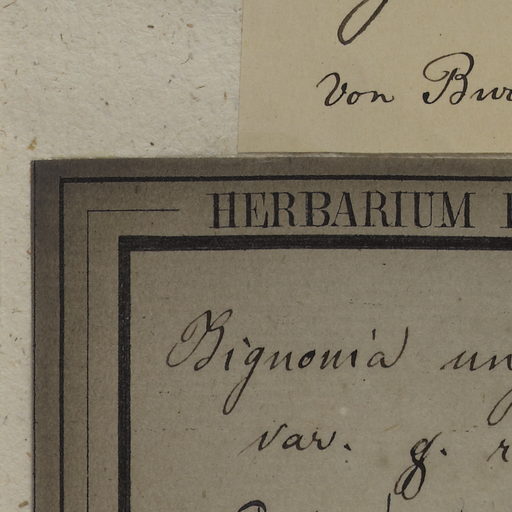 von Bur
HERBARIUM
Bignonia un
var. g. r